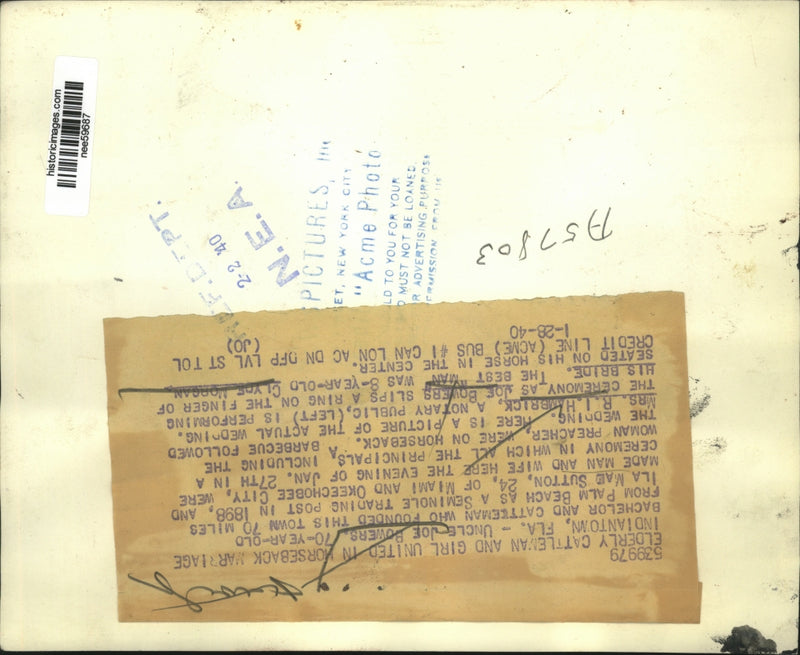 historicimages.com
nee59687
REF. DEPT.
2-2 '40
N.E.A.
PICTURES,
ET, NEW YORK CITY
"Acme Photo
LD TO YOU FOR YOUR
D MUST NOT BE LOANED,
R ADVERTISING PURPOSE
ERMISSION FROM US
A57803
539979
ELDERLY CATTLEMAN AND GIRL UNITED IN HORSEBACK MARRIAGE
INDIANTOWN, FLA. - UNCLE JOE BOWERS, 70-YEAR-OLD
BACHELOR AND CATTLEMAN WHO FOUNDED THIS TOWN 70 MILES
FROM PALM BEACH AS A SEMINOLE TRADING POST IN 1898, AND
ILA MAE SUTTON, 24, OF MIAMI AND OKEECHOBEE CITY, WERE
MADE MAN AND WIFE HERE THE EVENING OF JAN. 27TH IN A
CEREMONY IN WHICH ALL THE PRINCIPALS, INCLUDING THE
WOMAN PREACHER, WERE ON HORSEBACK. A BARBECUE FOLLOWED
THE WEDDING. HERE IS A PICTURE OF THE ACTUAL WEDDING.
MRS. R. H. HAMBRICK, A NOTARY PUBLIC, (LEFT) IS PERFORMING
THE CEREMONY AS JOE BOWERS SLIPS A RING ON THE FINGER OF
HIS BRIDE. THE BEST MAN WAS 8-YEAR-OLD CLYDE MORGAN,
SEATED ON HIS HORSE IN THE CENTER.
CREDIT LINE (ACME) BUS #1 CAN LON AC DN OFP LVL ST TOL
1-28-40 (JO)